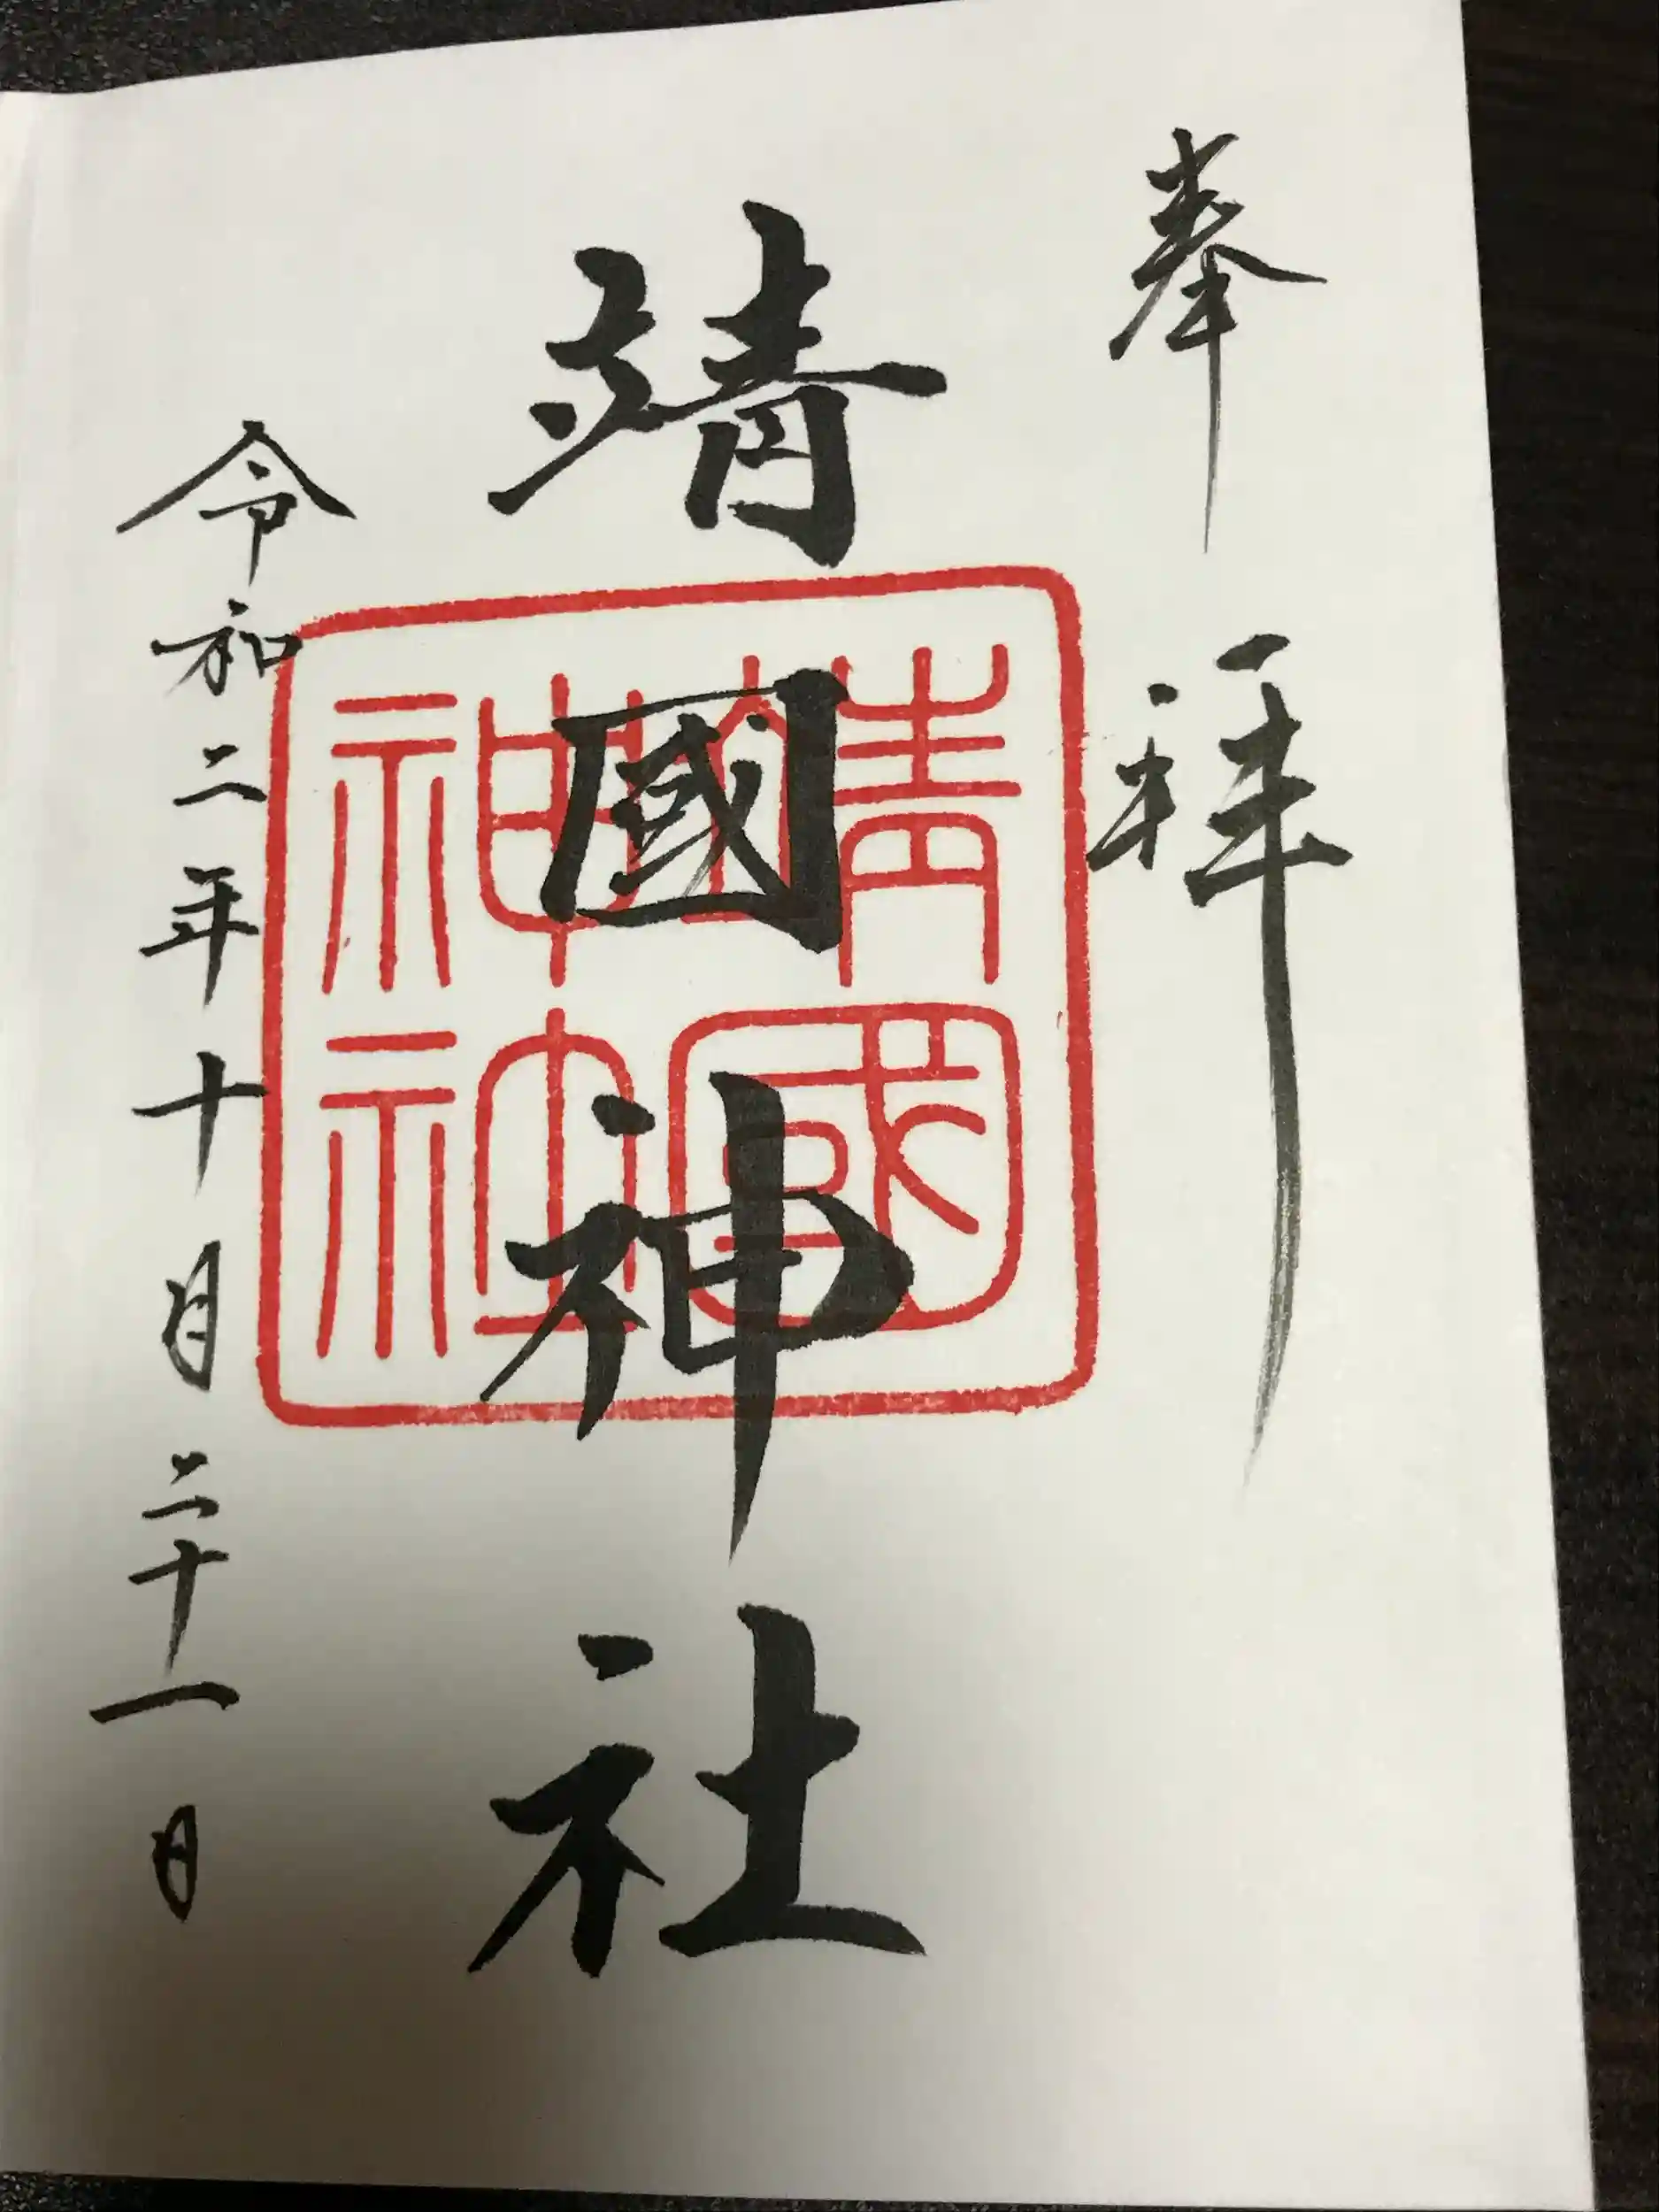 奉拝
靖國神社
靖國
神社
令和二年十月二十一日